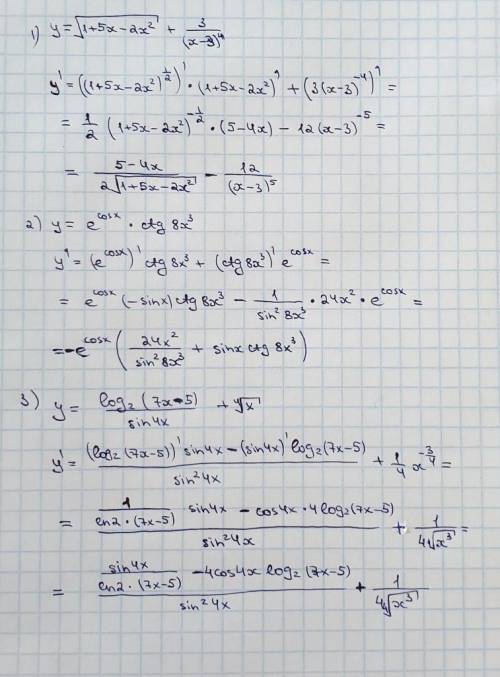 1) y = √(1+5x-2x²) + 3/(x-3)⁴
y' = ((1+5x-2x²)^(1/2))' · (1+5x-2x²)' + (3(x-3)^(-4))' =
= 1/2 (1+5x-2x²)^(-1/2) · (5-4x) - 12(x-3)^(-5) =
= (5-4x)/(2√(1+5x-2x²)) - 12/(x-3)⁵
2) y = e^(cosx) · ctg 8x³
y' = (e^(cosx))' ctg 8x³ + (ctg 8x³)' e^(cosx) =
= e^(cosx) (-sinx) ctg 8x³ - 1/(sin² 8x³) · 24x² · e^(cosx) =
= -e^(cosx) (24x²/(sin² 8x³) + sinx ctg 8x³)
3) y = log₂(7x-5)/(sin4x) + ⁴√x
y' = ((log₂(7x-5))' sin4x - (sin4x)' log₂(7x-5))/(sin² 4x) + 1/4 x^(-3/4) =
= (1/(ln2 · (7x-5)) sin4x - cos4x · 4log₂(7x-5))/(sin² 4x) + 1/(4 ⁴√x³) =
= (sin4x/(ln2 · (7x-5)) - 4cos4x log₂(7x-5))/(sin² 4x) + 1/(4 ⁴√x³)